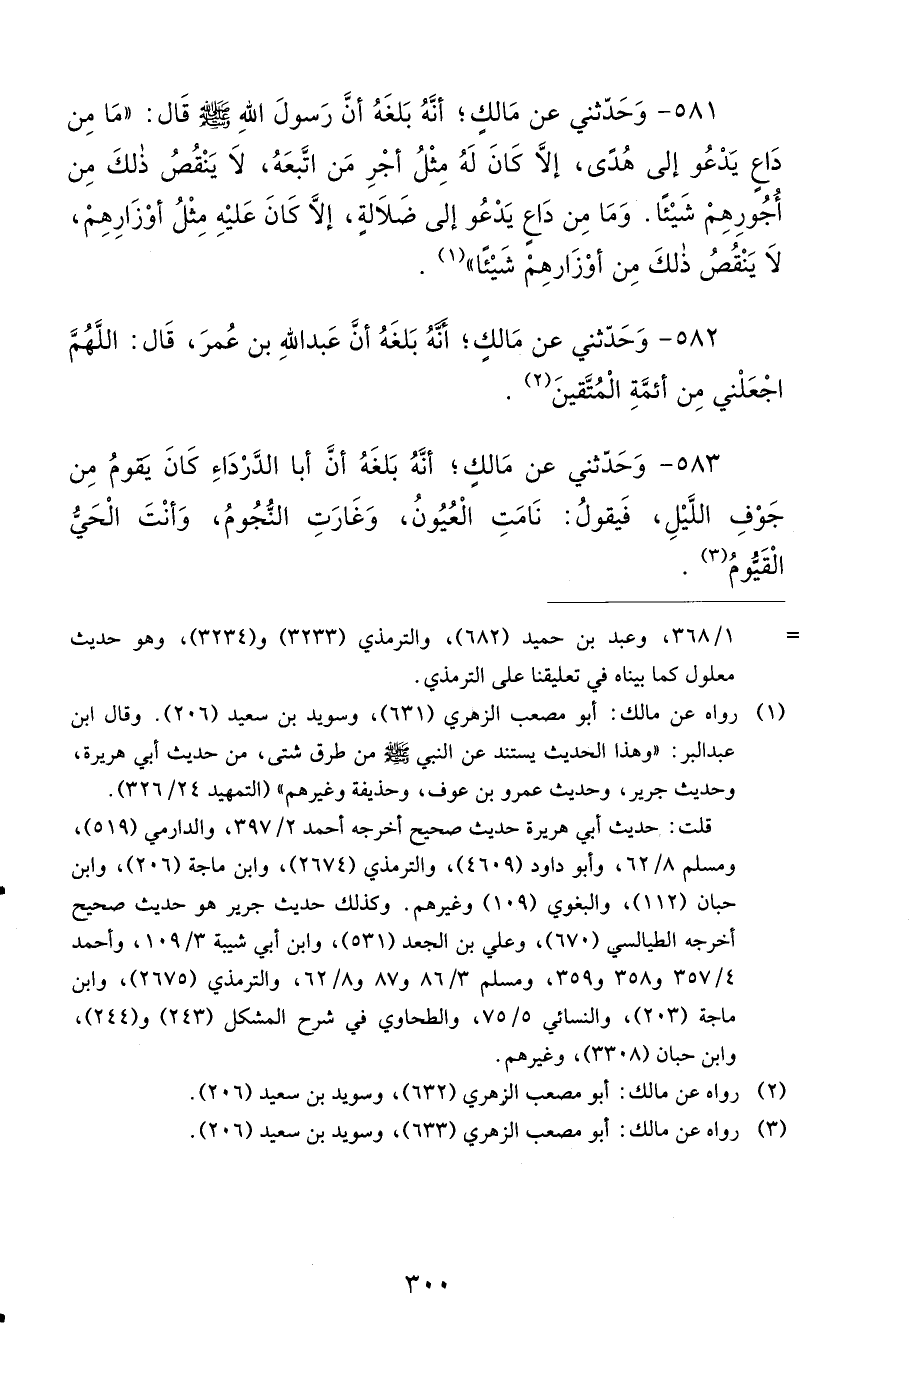 ٥٨١- وَحَدّثني عن مَالكٍ؛ أنَّهُ بَلغَهُ أنَّ رَسولَ اللهِ ﷺ قَال: «مَا مِن
دَاعٍ يَدْعُو إلى هُدًى، إلاَّ كَانَ لَهُ مِثْلُ أجْرِ مَن اتَّبعَهُ، لاَ يَنْقُصُ ذٰلكَ مِن
أُجُورِهِمْ شَيْئًا. وَمَا مِن دَاعٍ يَدْعُو إلى ضَلاَلةٍ، إلاَّ كَانَ عَليْهِ مِثْلُ أوْزَارِهِمْ،
لاَ يَنْقُصُ ذٰلكَ مِن أوْزَارهِمْ شَيْئًا»(١) .
٥٨٢- وَحَدّثني عن مَالكٍ؛ أنَّهُ بَلغَهُ أنَّ عَبدالله بن عُمرَ، قَال: اللَّهُمَّ
اجْعَلْني مِن أئمَّةِ الْمُتَّقينَ(٢) .
٥٨٣- وَحَدّثني عن مَالكٍ؛ أنَّهُ بَلغَهُ أنَّ أبا الدَّرْدَاءِ كَانَ يَقومُ مِن
جَوْفِ اللَّيْلِ، فَيقولُ: نَامَتِ الْعُيُونُ، وَغَارَتِ النُّجُومُ، وَأنْتَ الْحَيُّ
الْقَيُّومُ(٣) .
= ٣٦٨/١، وعبد بن حميد (٦٨٢)، والترمذي (٣٢٣٣) و(٣٢٣٤)، وهو حديث
معلول كما بيناه في تعليقنا على الترمذي.
(١) رواه عن مالك: أبو مصعب الزهري (٦٣١)، وسويد بن سعيد (٢٠٦). وقال ابن
عبدالبر: «وهذا الحديث يستند عن النبي ﷺ من طرق شتى، من حديث أبي هريرة،
وحديث جرير، وحديث عمرو بن عوف، وحذيفة وغيرهم» (التمهيد ٣٢٦/٢٤).
قلت: حديث أبي هريرة حديث صحيح أخرجه أحمد ٣٩٧/٢، والدارمي (٥١٩)،
ومسلم ٦٢/٨، وأبو داود (٤٦٠٩)، والترمذي (٢٦٧٤)، وابن ماجة (٢٠٦)، وابن
حبان (١١٢)، والبغوي (١٠٩) وغيرهم. وكذلك حديث جرير هو حديث صحيح
أخرجه الطيالسي (٦٧٠)، وعلي بن الجعد (٥٣١)، وابن أبي شيبة ١٠٩/٣، وأحمد
٣٥٧/٤ و٣٥٨ و٣٥٩، ومسلم ٨٦/٣ و٨٧ و٦٢/٨، والترمذي (٢٦٧٥)، وابن
ماجة (٢٠٣)، والنسائي ٧٥/٥، والطحاوي في شرح المشكل (٢٤٣) و(٢٤٤)،
وابن حبان (٣٣٠٨)، وغيرهم.
(٢) رواه عن مالك: أبو مصعب الزهري (٦٣٢)، وسويد بن سعيد (٢٠٦).
(٣) رواه عن مالك: أبو مصعب الزهري (٦٣٣)، وسويد بن سعيد (٢٠٦).
٣٠٠